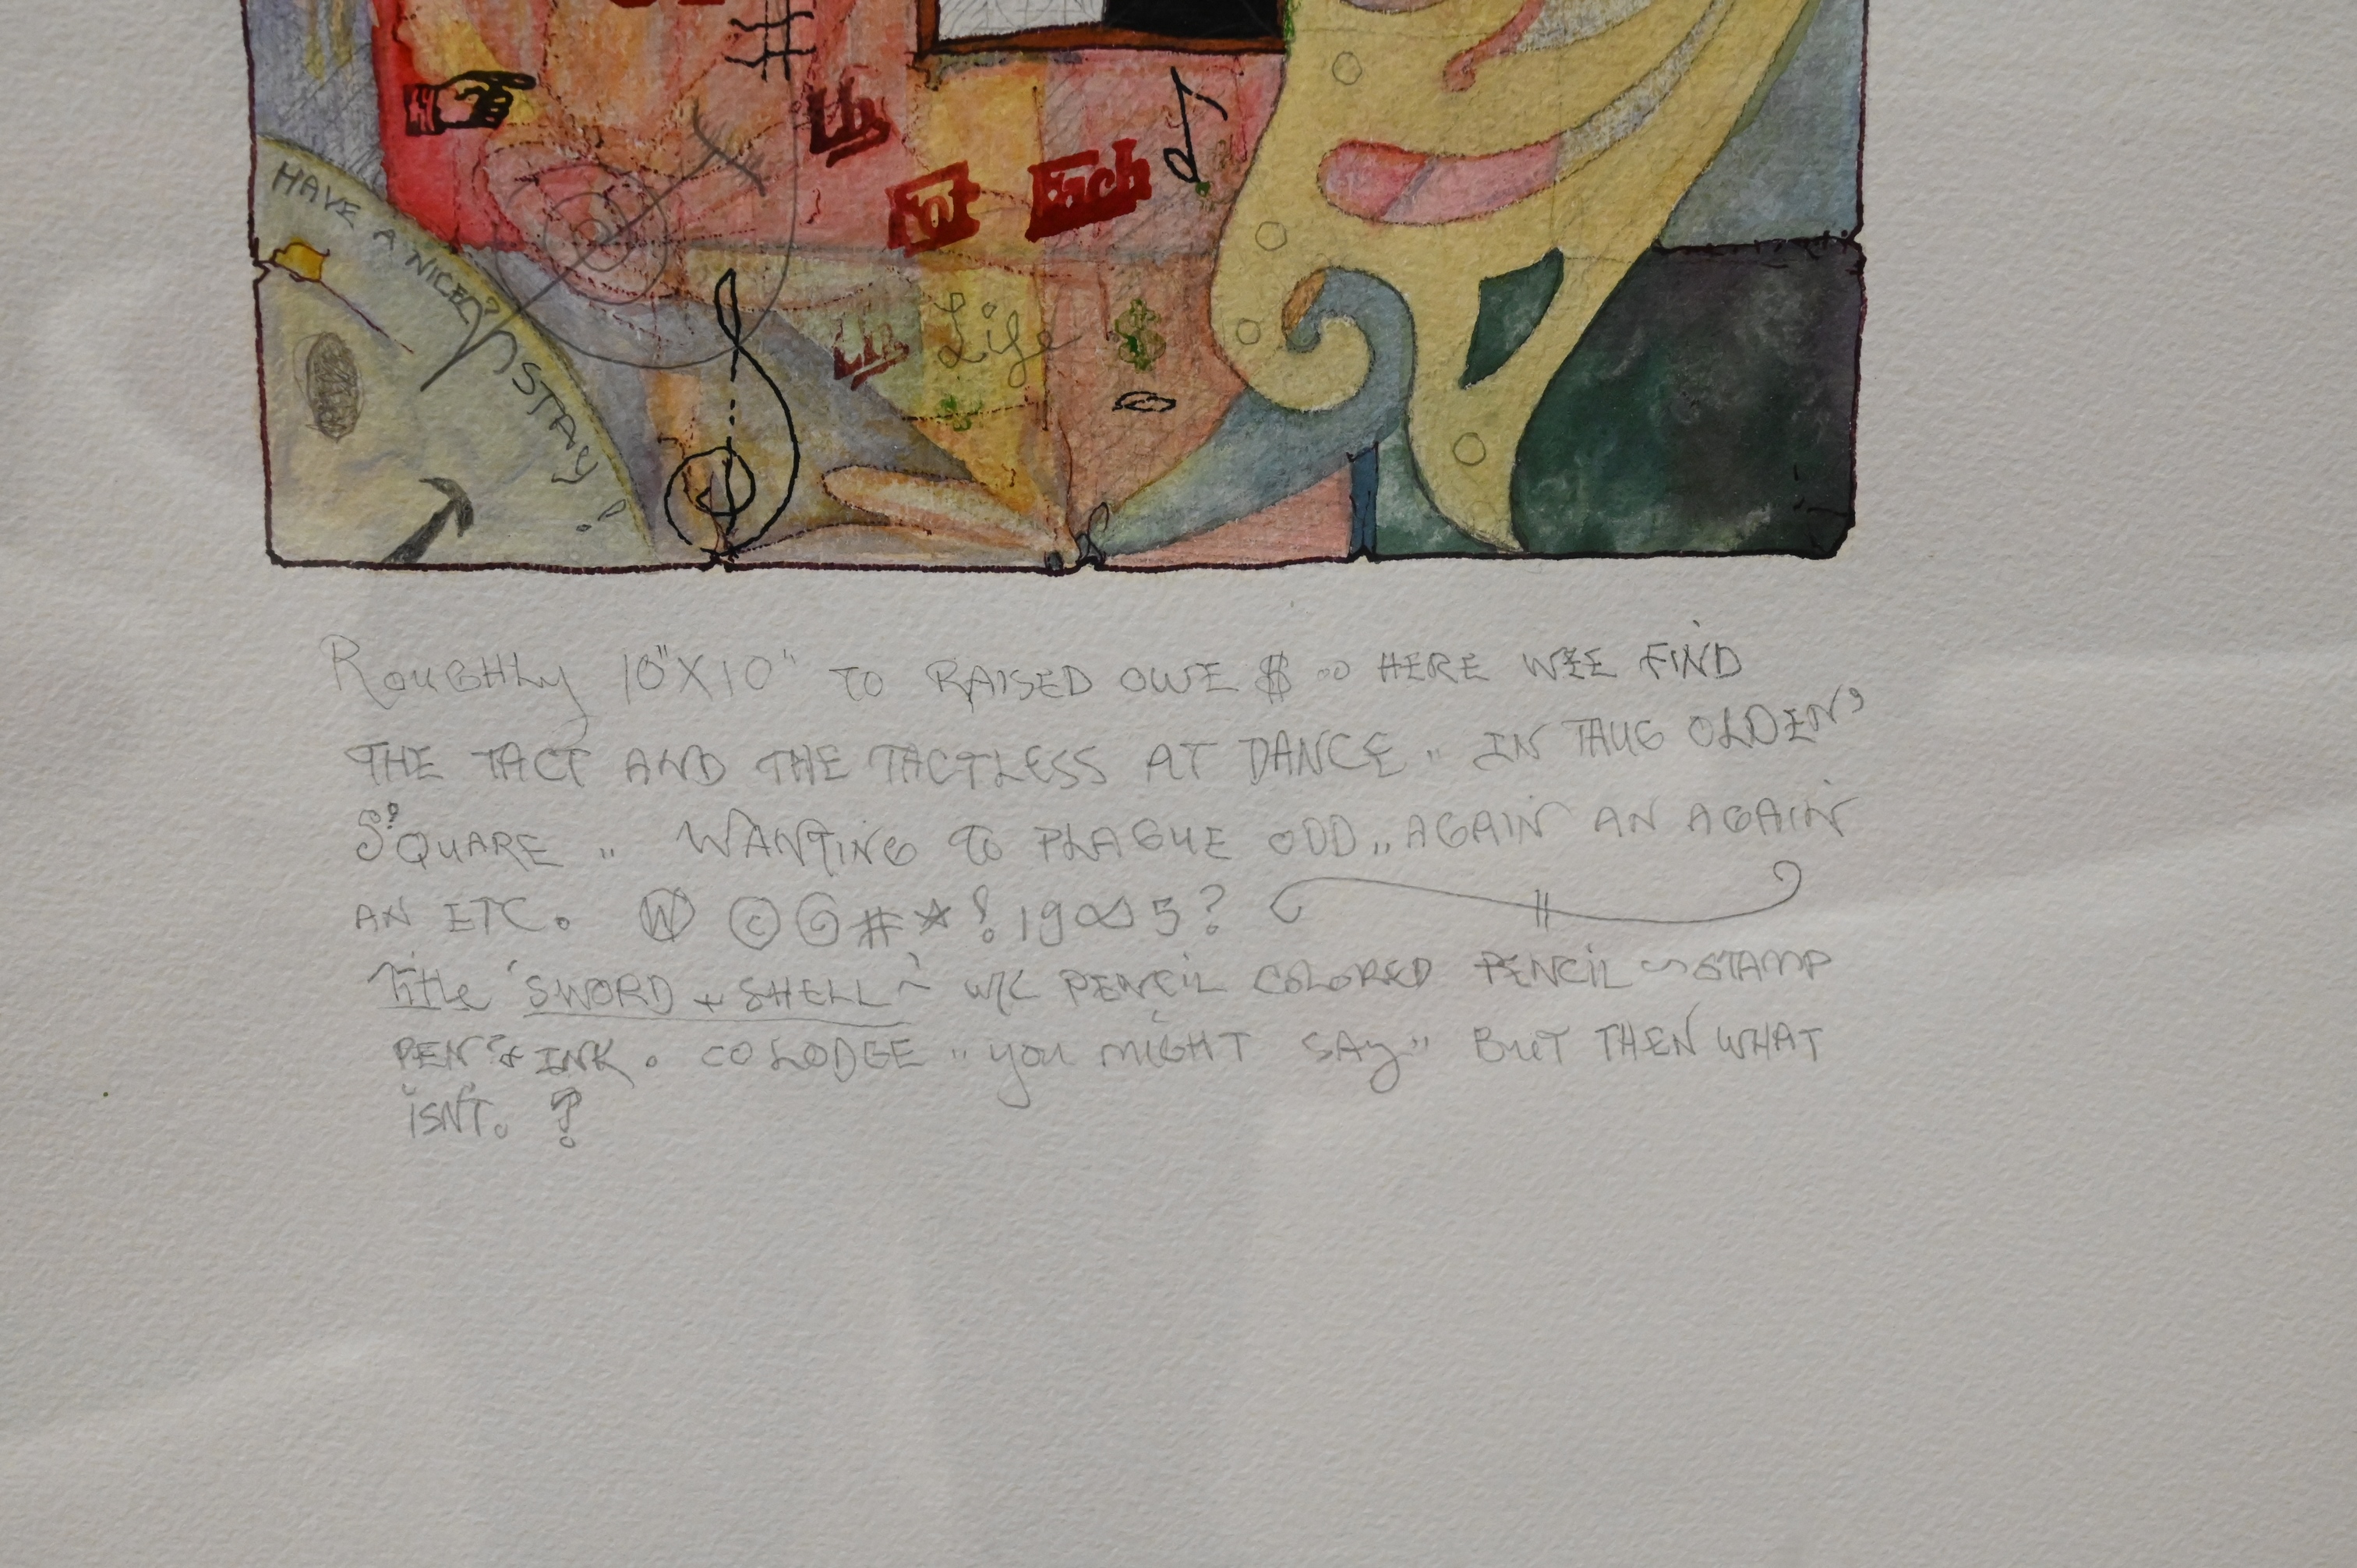 Lb
For Each
HAVE A NICE STAY!
Lb Life $
ROUGHLY 10" X 10" TO RAISED OWE $ ∞ HERE WEE FIND
THE TACT AND THE TACTLESS AT DANCE .. IN THUG OLDEN'
S'QUARE .. WANTING TO PLAGUE ODD .. AGAIN AN AGAIN
AN ETC. Ⓦ © @ # * ! 19∞5?
Title 'SWORD + SHELL ~ W/C PENCIL COLORED PENCIL ~ STAMP
PEN & INK. CO LODGE .. YOU MIGHT SAY .. BUT THEN WHAT
ISN'T. ?